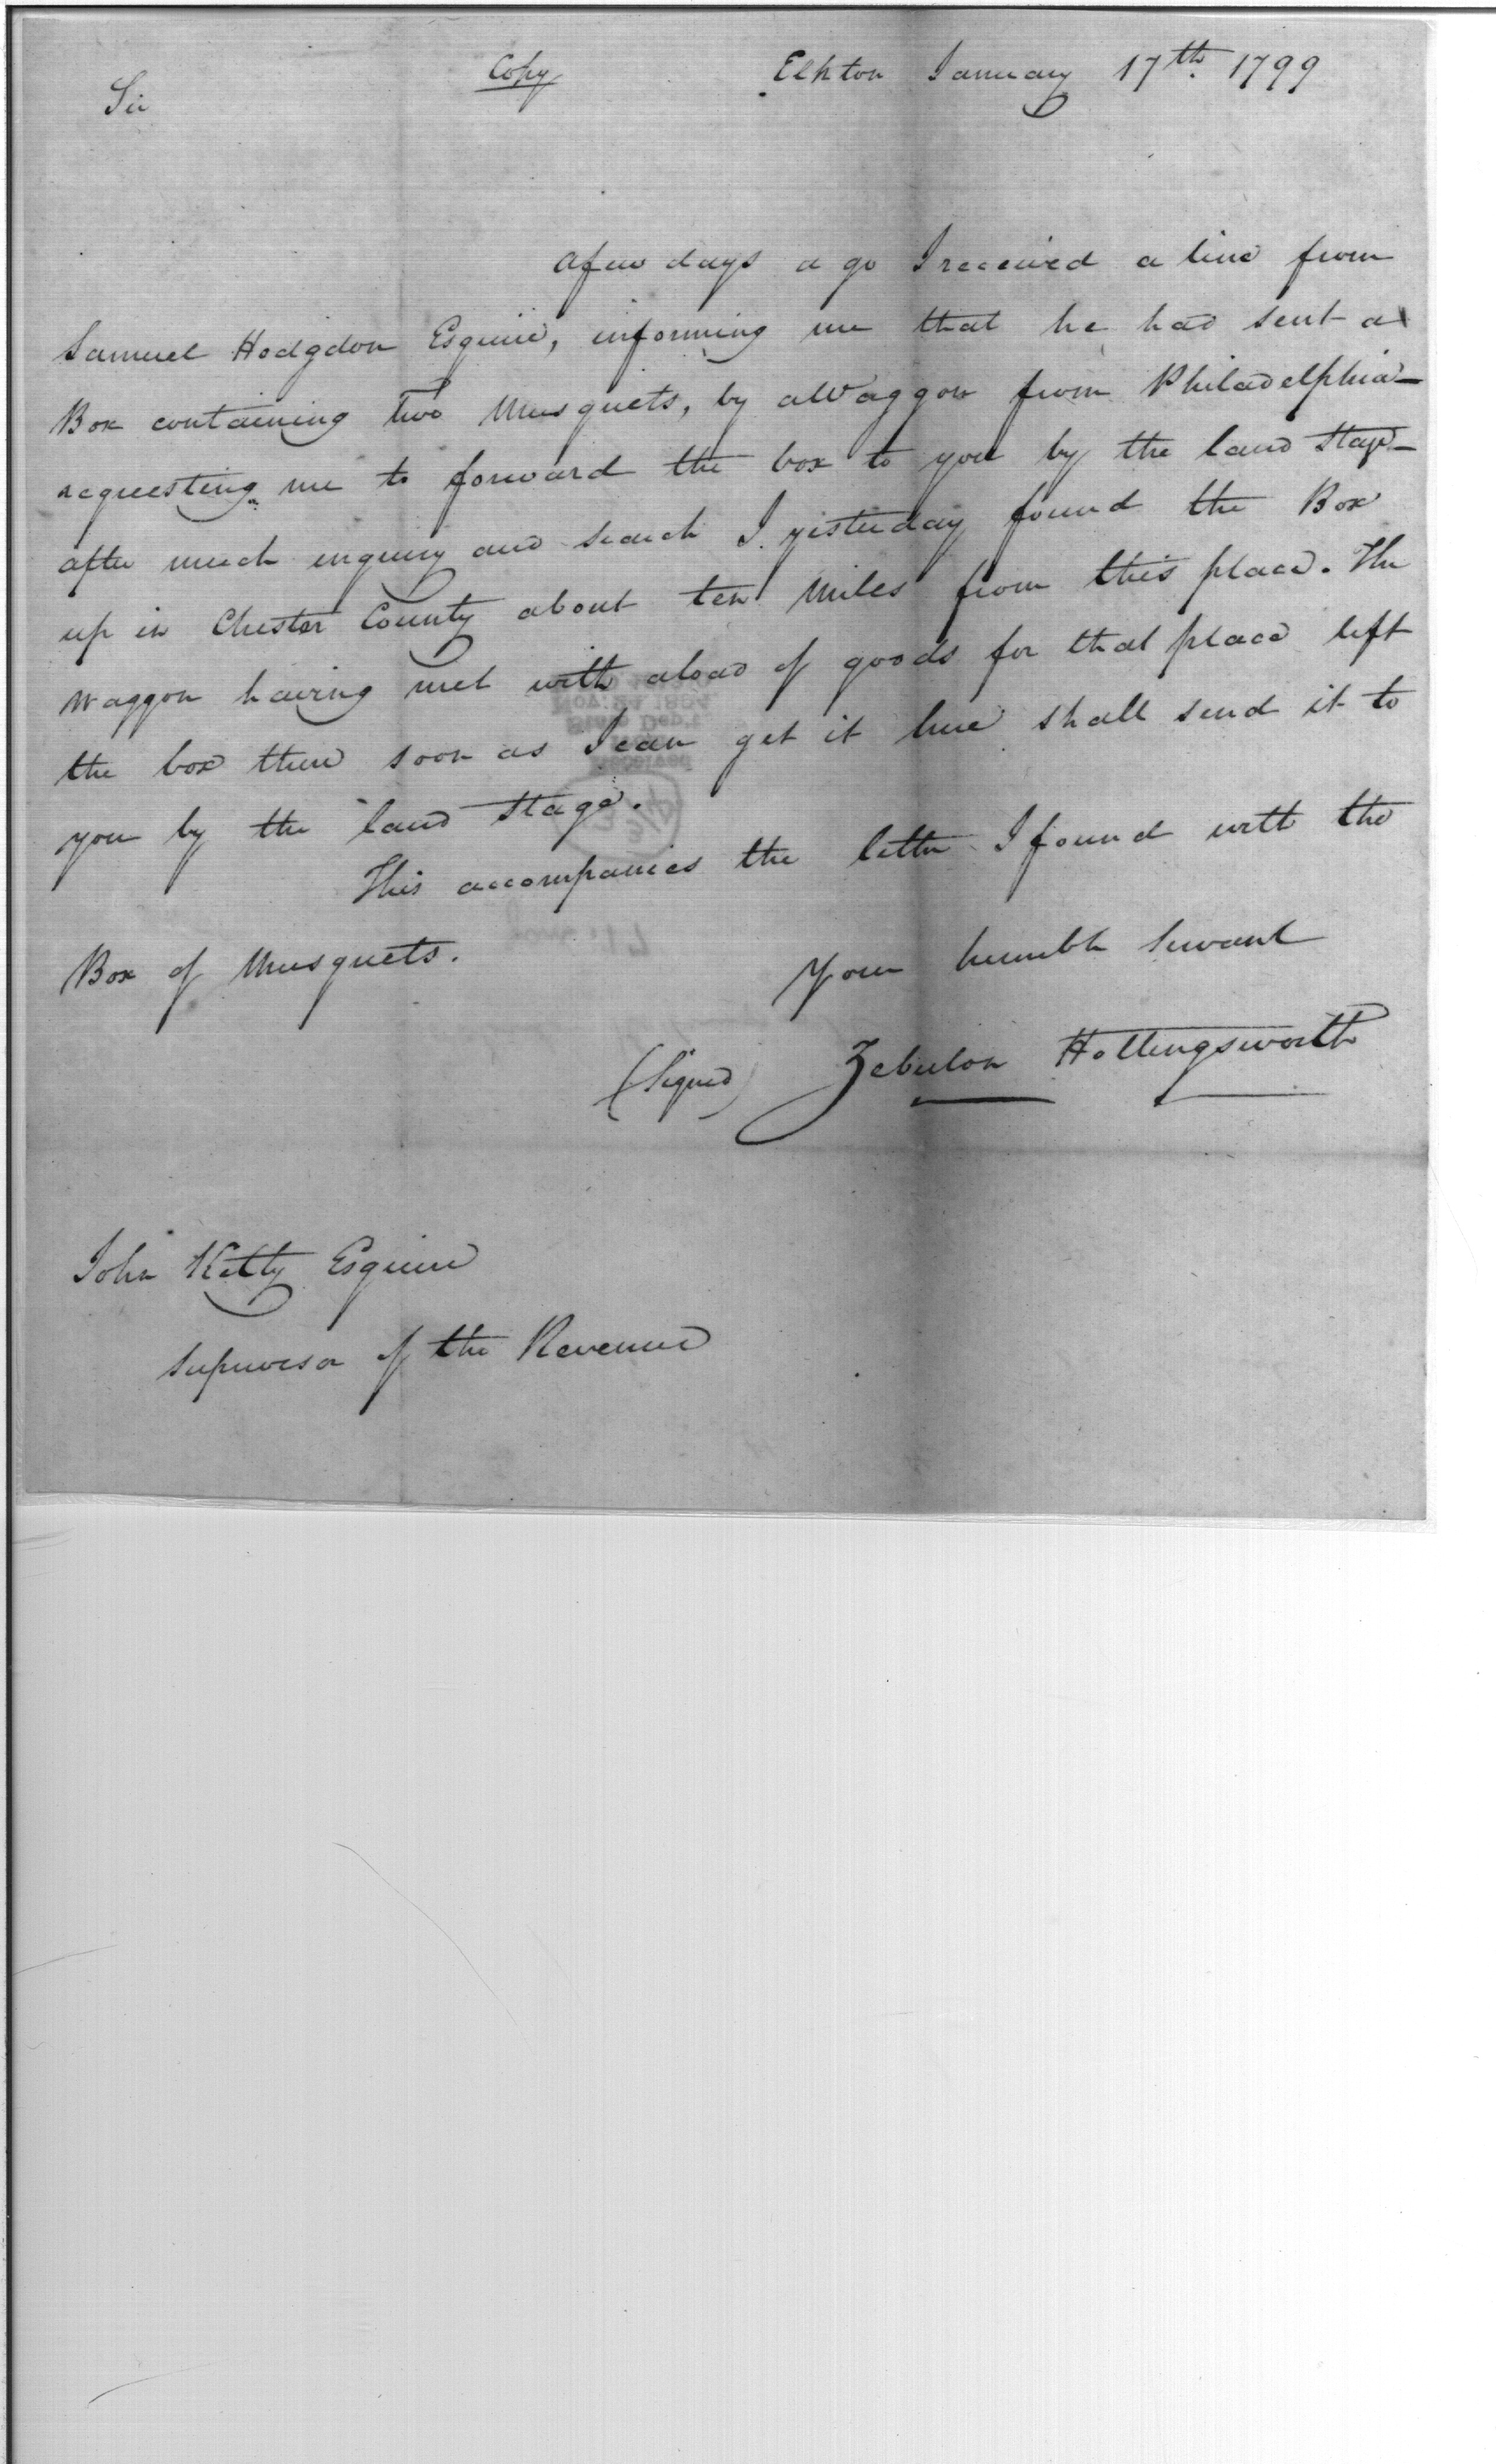 Copy
Elkton January 17th. 1799
Sir
a few days a go I received a line from
Samuel Hodgdon Esquire, informing me that he had sent a
Box containing Two Musquets, by a Waggon from Philadelphia—
requesting me to forward the box to you by the land Stage—
after much enquiry and search I yesterday found the Box
up in Chester County about ten Miles from this place. The
Waggon having met with a load of goods for that place left
the box there soon as I can get it here shall send it to
you by the land Stage.
This accompanies the letter I found with the
Box of Musquets.
Your humble Servant
(Signed) Zebulon Hollingsworth
John Kilty Esquire
Supervisor of the Revenue